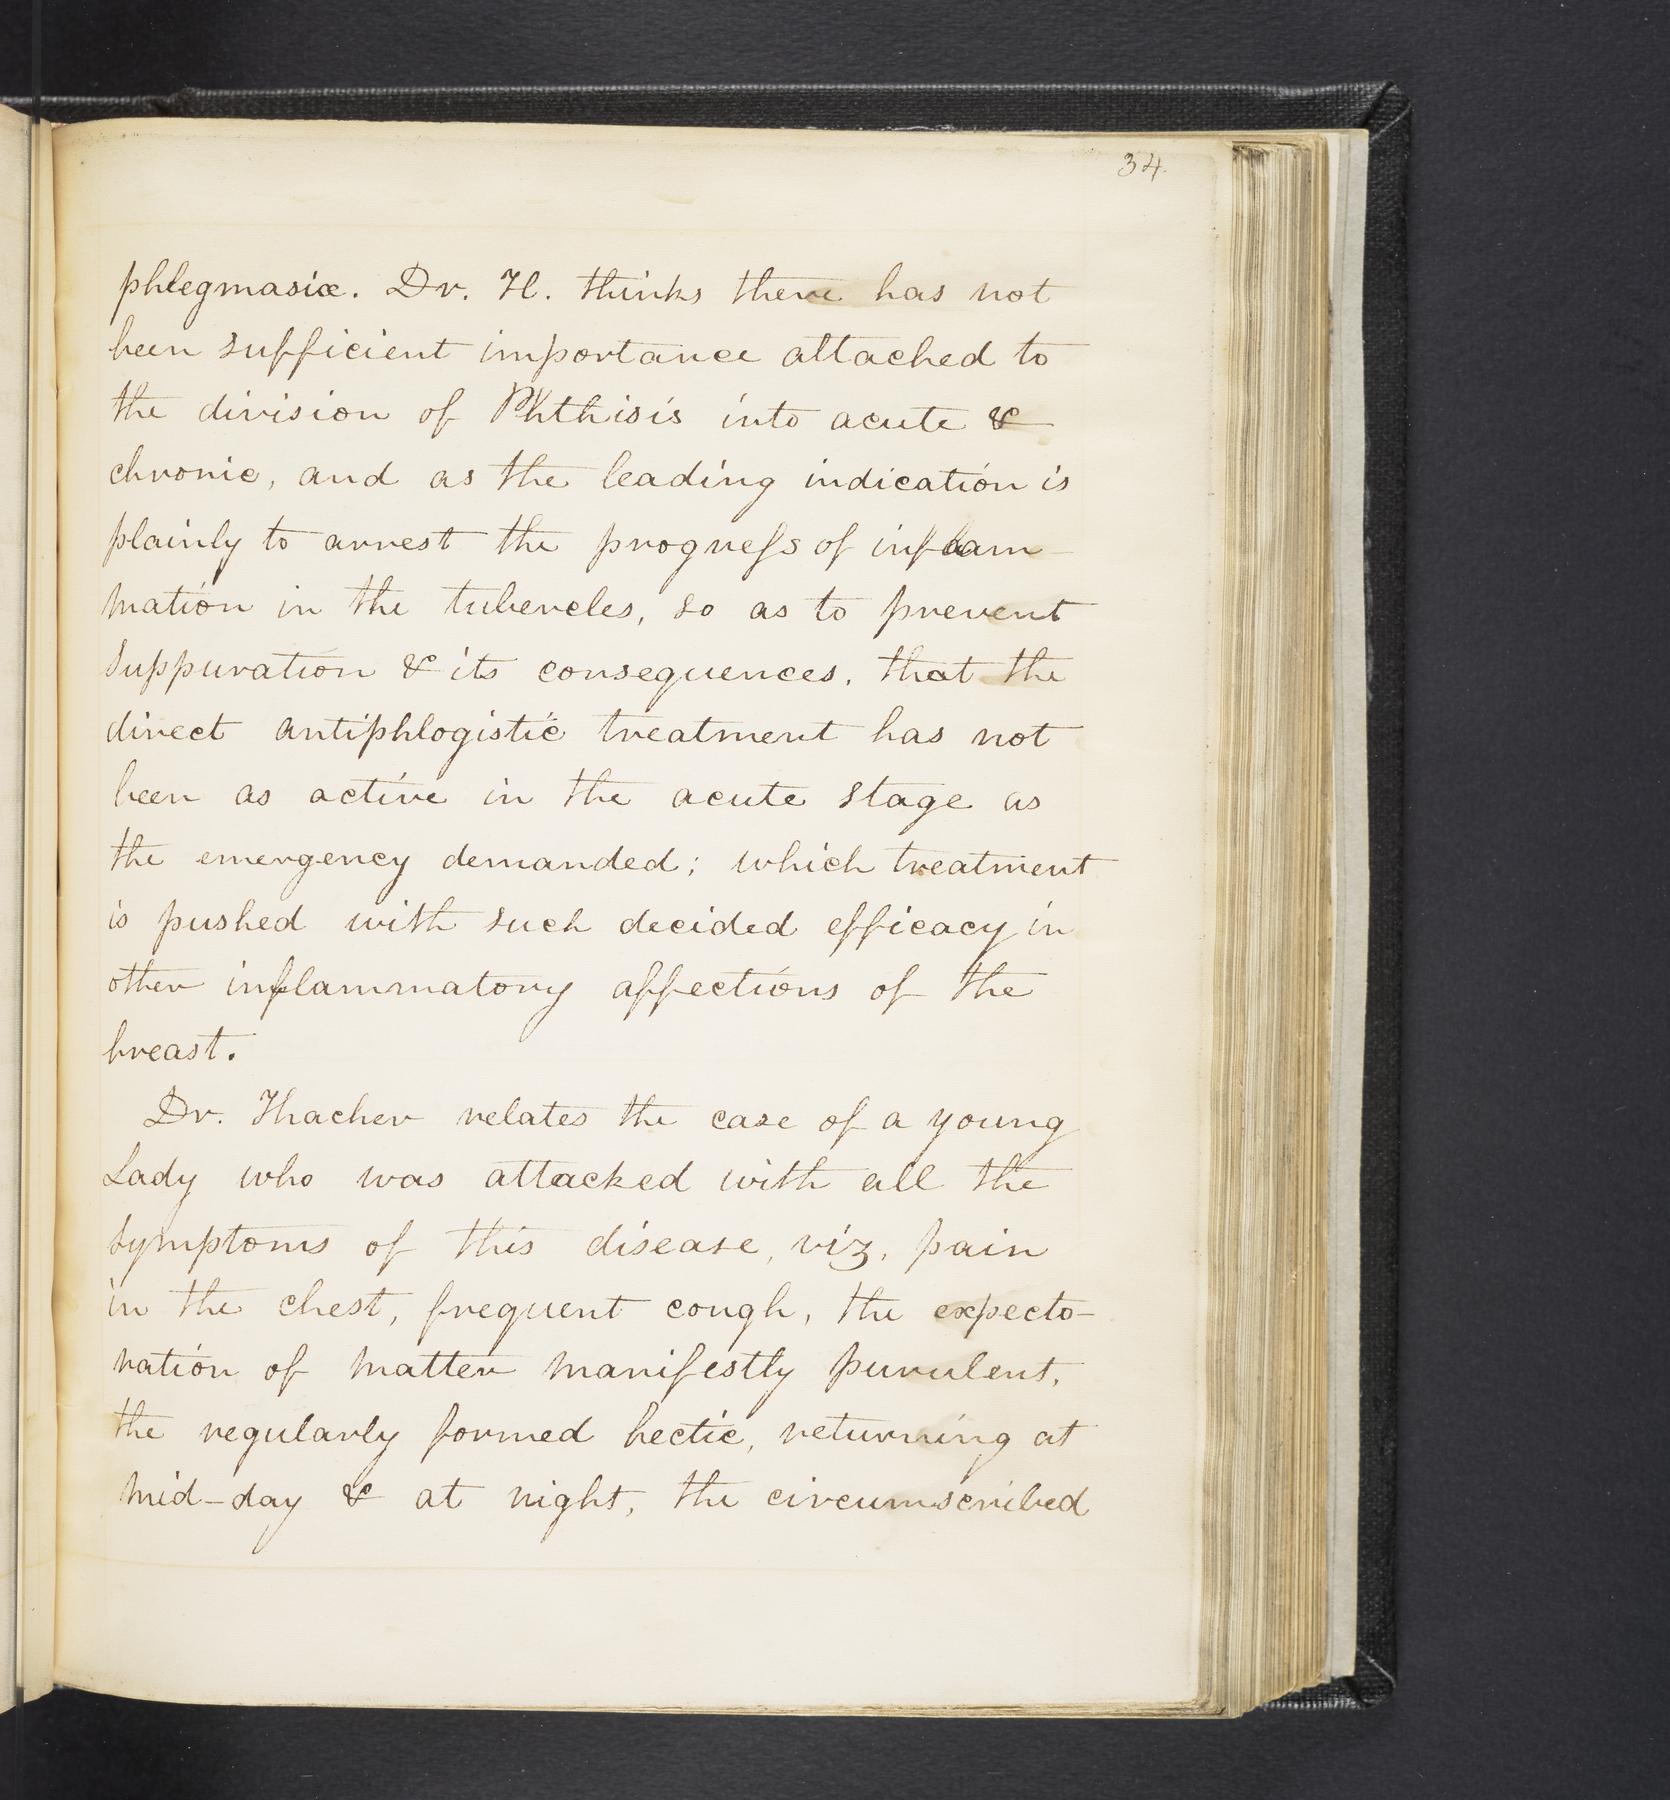 34.
phlegmasiæ. Dr. H. thinks there has not
been sufficient importance attached to
the division of Phthisis into acute &
chronic, and as the leading indication is
plainly to arrest the progress of inflam-
mation in the tubercles, so as to prevent
suppuration & its consequences, that the
direct antiphlogistic treatment has not
been as active in the acute stage as
the emergency demanded; which treatment
is pushed with such decided efficacy in
other inflammatory affections of the
breast.
Dr. Thacher relates the case of a young
Lady who was attacked with all the
symptoms of this disease, viz, pain
in the chest, frequent cough, the expecto-
ration of matter manifestly purulent,
the regularly formed hectic, returning at
mid-day & at night, the circumscribed